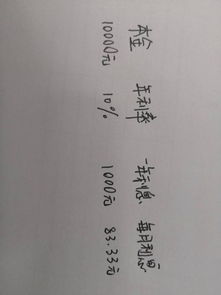 本金 年利率 一年利息 每月利息
10000元 10% 1000元 83.33元